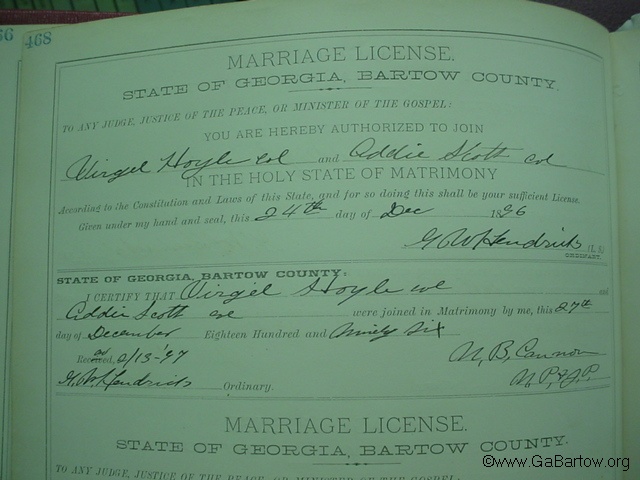 66 468
MARRIAGE LICENSE.
STATE OF GEORGIA, BARTOW COUNTY.
TO ANY JUDGE, JUSTICE OF THE PEACE, OR MINISTER OF THE GOSPEL:
YOU ARE HEREBY AUTHORIZED TO JOIN
Virgil Hoyle col and Addie Scott col
IN THE HOLY STATE OF MATRIMONY
According to the Constitution and Laws of this State, and for so doing this shall be your sufficient License.
Given under my hand and seal, this 24th day of Dec 1896
G. W. Hendricks (L. S.)
ORDINARY.
STATE OF GEORGIA, BARTOW COUNTY:
I CERTIFY THAT Virgil Hoyle col and
Addie Scott col were joined in Matrimony by me, this 27th
day of December Eighteen Hundred and Ninety Six
Received, 2/13-'97 N. B. Cannon
G. W. Hendricks Ordinary. N. P. & J. P.
MARRIAGE LICENSE.
STATE OF GEORGIA, BARTOW COUNTY.
TO ANY JUDGE, JUSTICE OF THE PEACE, OR MINISTER OF THE GOSPEL:
©www.GaBartow.org